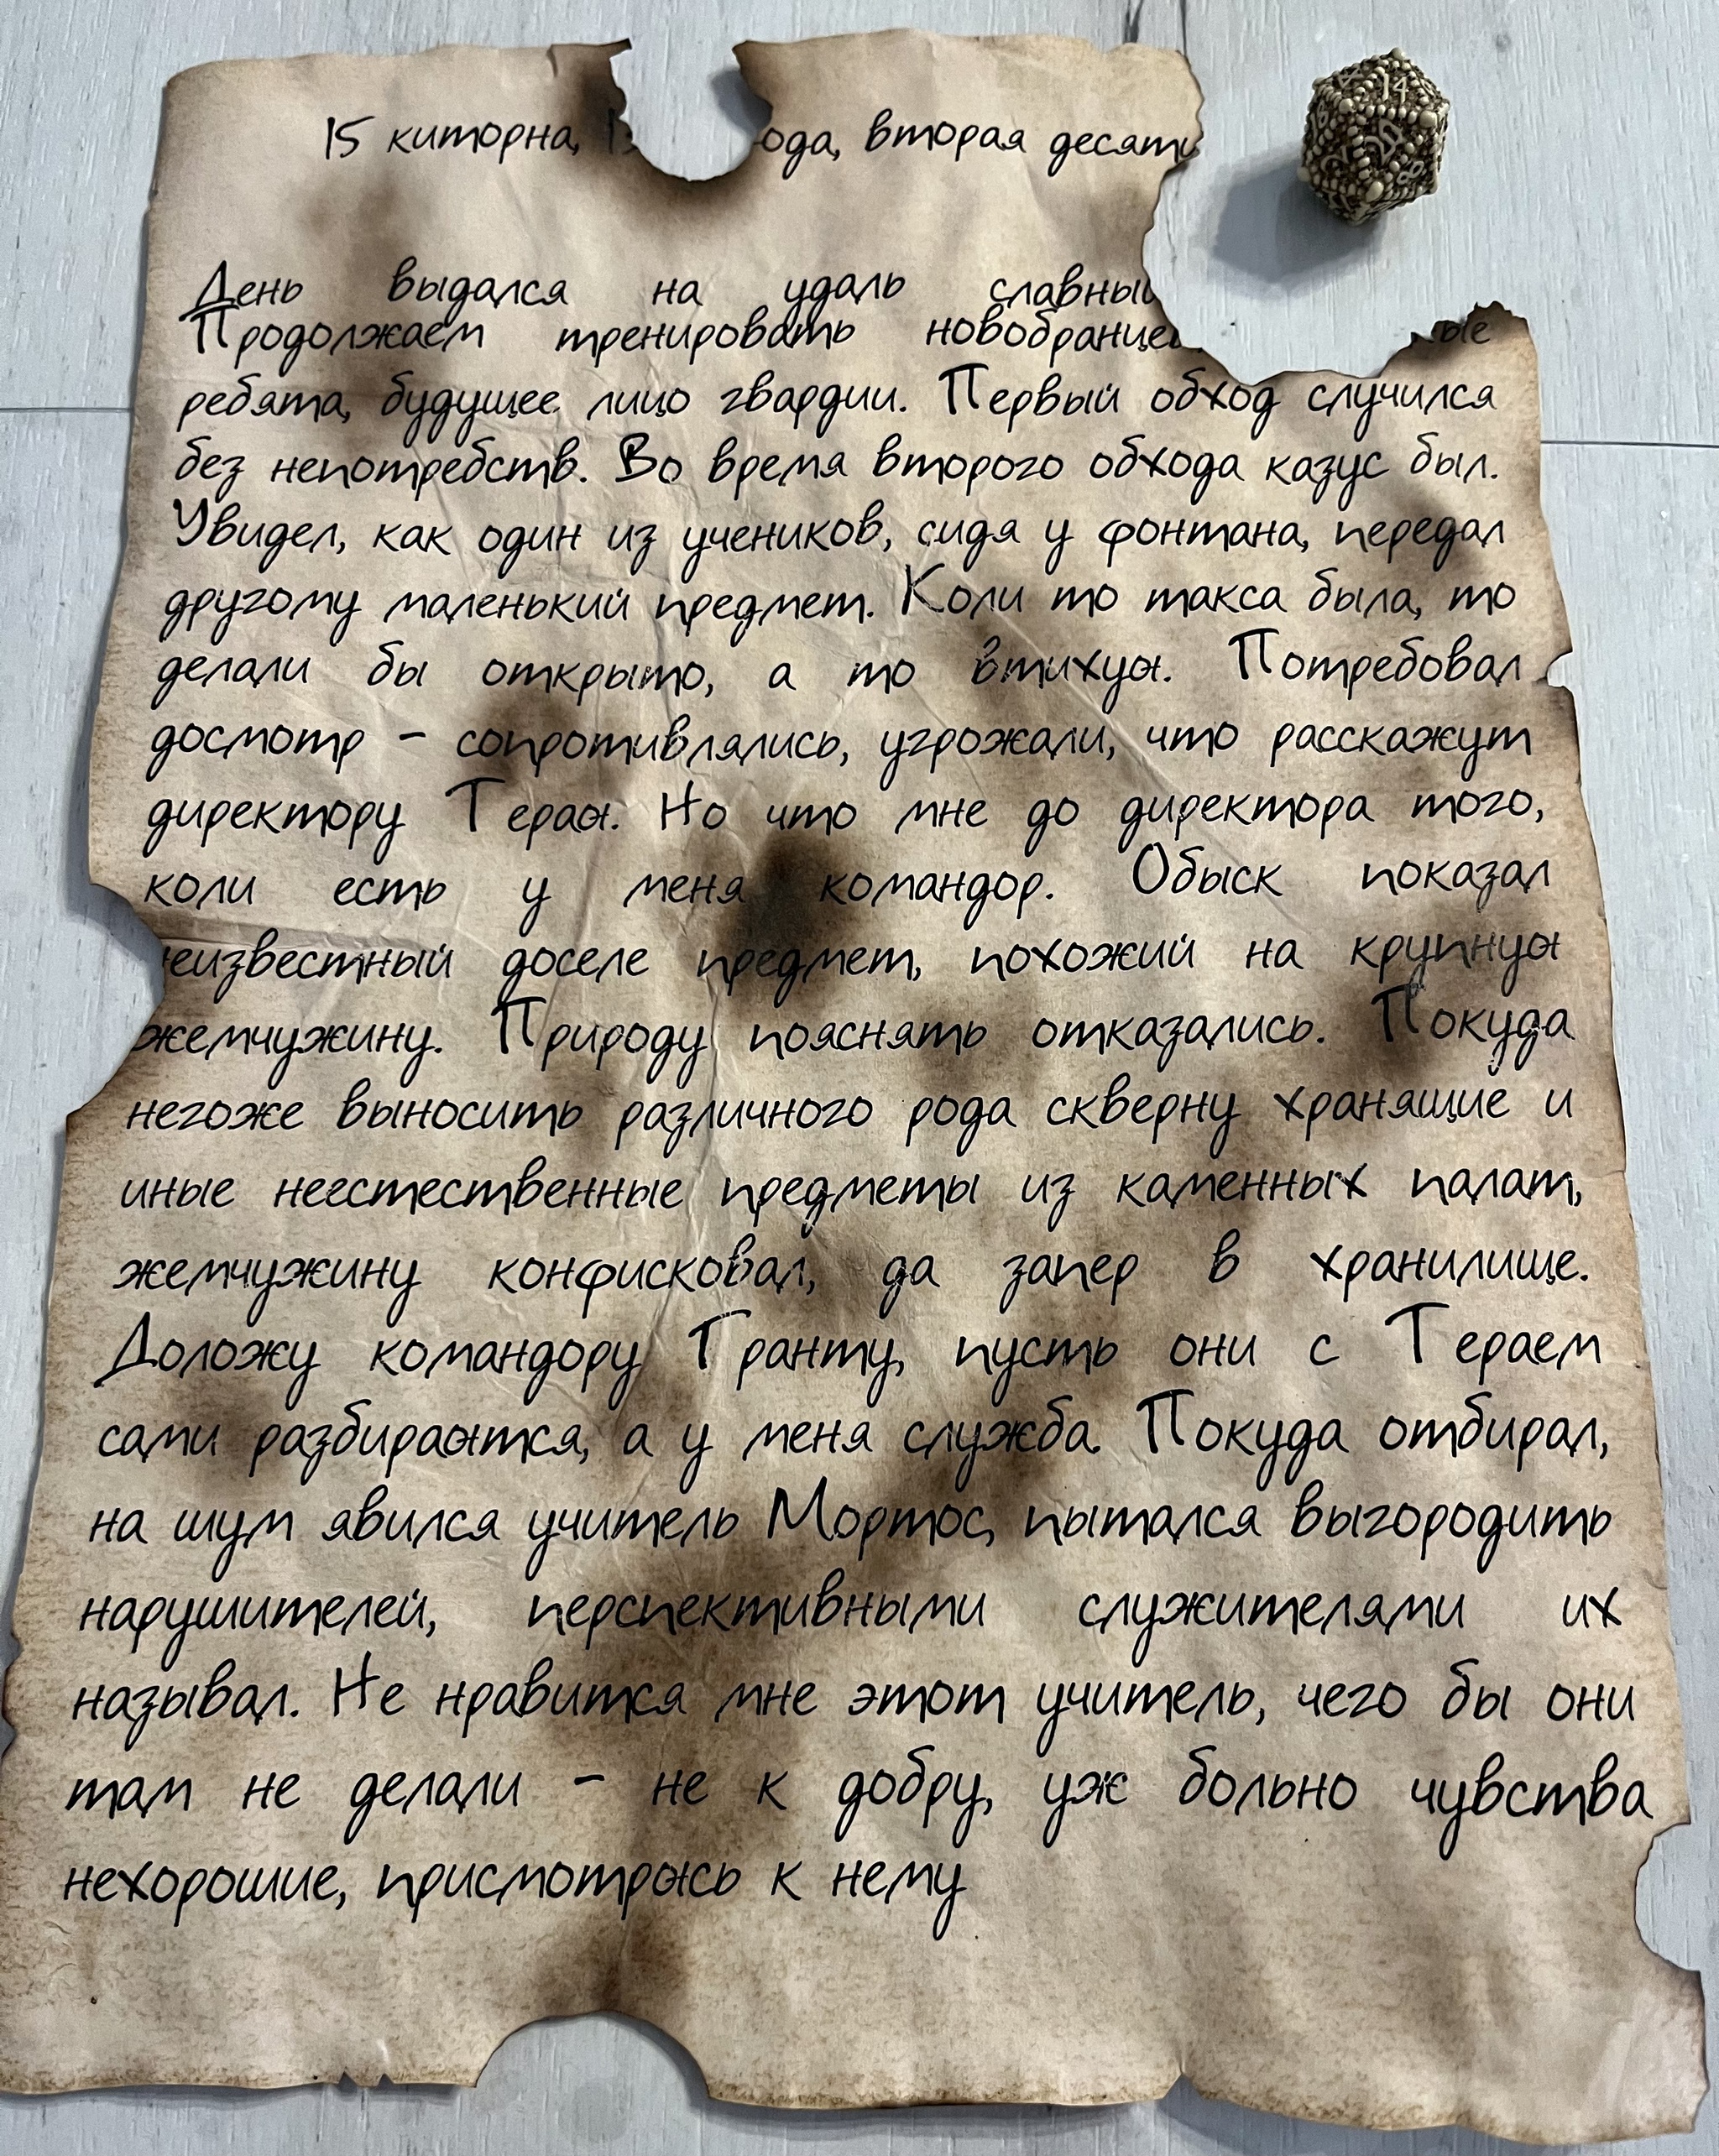 15 киторна, ода, вторая десяти
День выдался на удаль славный
Продолжаем тренировать новобранцев ые
ребята, будущее лицо гвардии. Первый обход случился
без непотребств. Во время второго обхода казус был.
Увидел, как один из учеников, сидя у фонтана, передал
другому маленький предмет. Коли то такса была, то
делали бы открыто, а то втихую. Потребовал
досмотр - сопротивлялись, угрожали, что расскажут
директору Тераю. Но что мне до директора того,
коли есть у меня командор. Обыск показал
неизвестный доселе предмет, похожий на крупную
жемчужину. Природу пояснять отказались. Покуда
негоже выносить различного рода скверну хранящие и
иные неестественные предметы из каменных палат,
жемчужину конфисковал, да запер в хранилище.
Доложу командору Гранту, пусть они с Тераем
сами разбираются, а у меня служба. Покуда отбирал,
на шум явился учитель Мортос, пытался выгородить
нарушителей, перспективными служителями их
называл. Не нравится мне этот учитель, чего бы они
там не делали - не к добру, уж больно чувства
нехорошие, присмотрюсь к нему
14